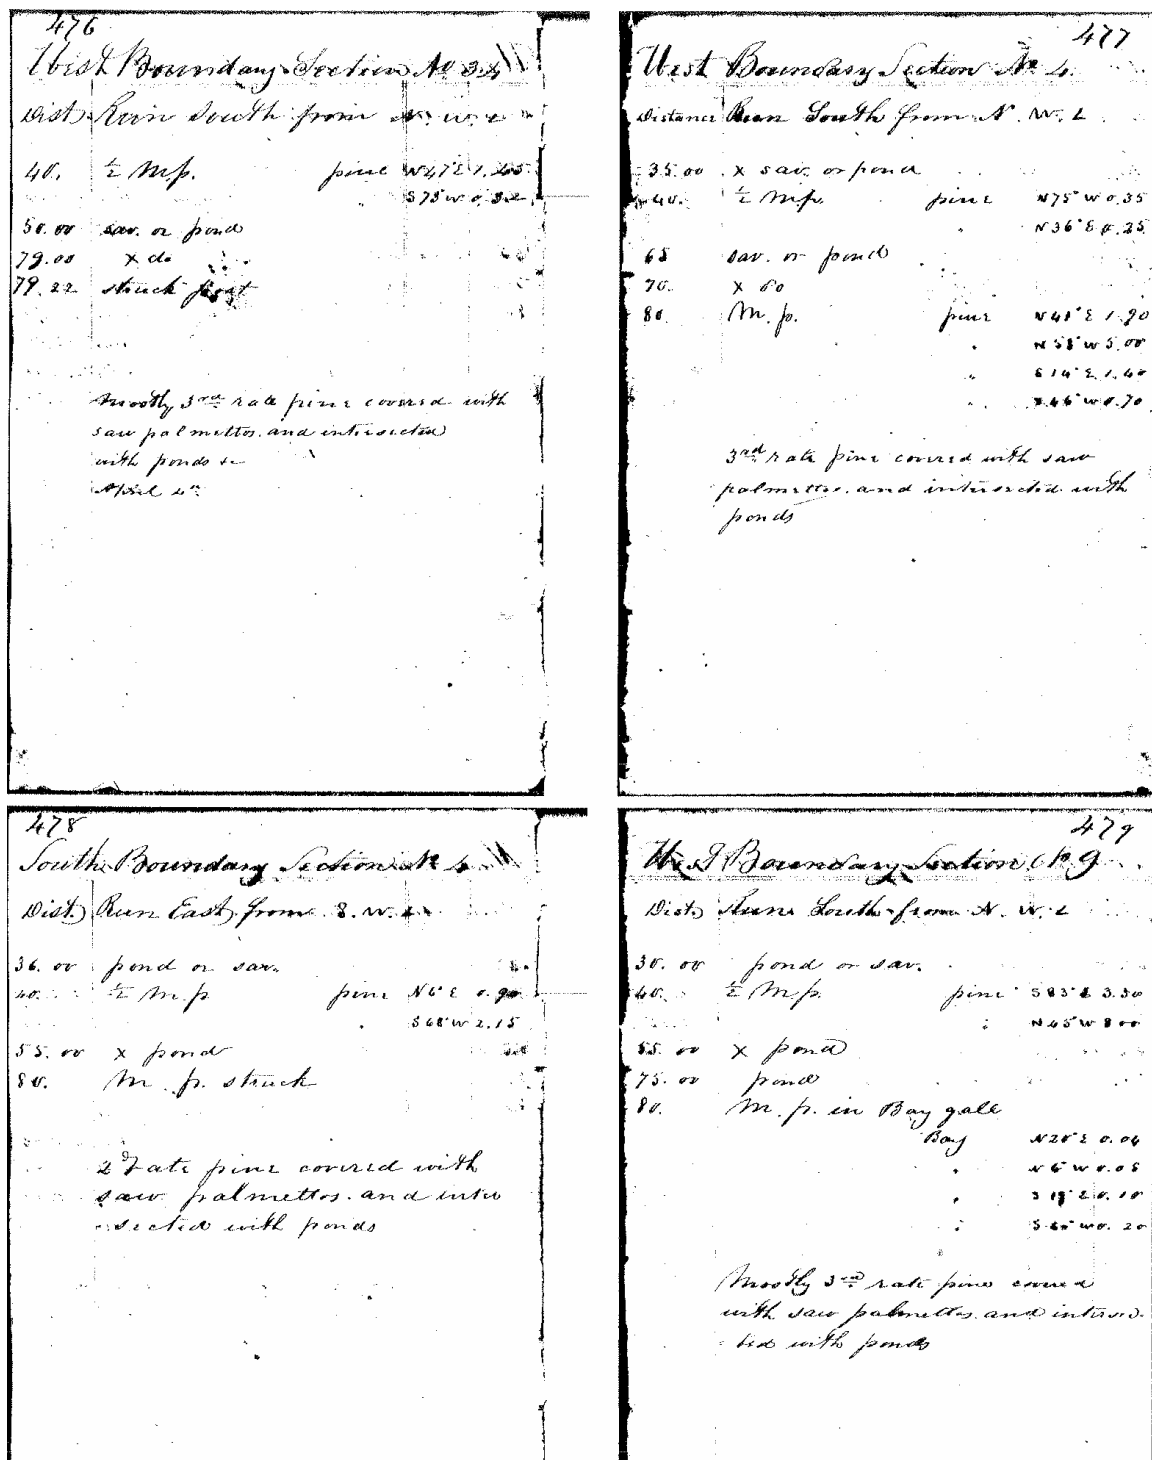 476
West Boundary Section No 34
Dist Run South from N. W.
40. ½ M.p. pine
S 75 W 0.32
50.00 sav. or pond
79.00 x do
79.22 struck post
Mostly 3rd rate pine covered with
saw palmettos and intersected
with ponds &c
April 4th
477
West Boundary Section No 4
Distance Run South from N. W.
35.00 x sav. or pond
40. ½ M.p. pine N 75° W 0.35
N 36° E 0.25
65 sav. or pond
70. x do
80. M. p. pine E 1.90
N 58° W 5.00
S 14° E 1.40
W 0.70
3rd rate pine covered with saw
palmettos and intersected with
ponds
478
South Boundary Section No 4
Dist. Run East from S. W.
36.00 pond or sav.
40. ½ M.p pine N 6° E 0.90
S 68° W 2.15
55.00 x pond
80. M. p. struck
rate pine covered with
saw palmettos and inter
sected with ponds
479
West Boundary Section No 9
Dist. Run South from N. W.
30.00 pond or sav.
40. ½ M.p. pine S 83° E 3.50
N 65° W 8.00
55.00 x pond
75.00 pond
80. M. p. in Bay gall
Bay N 20° E 0.04
N 6° W 0.05
S 19° E 0.10
W 0.20
Mostly 3rd rate pine covered
with saw palmettos and intersec
ted with ponds